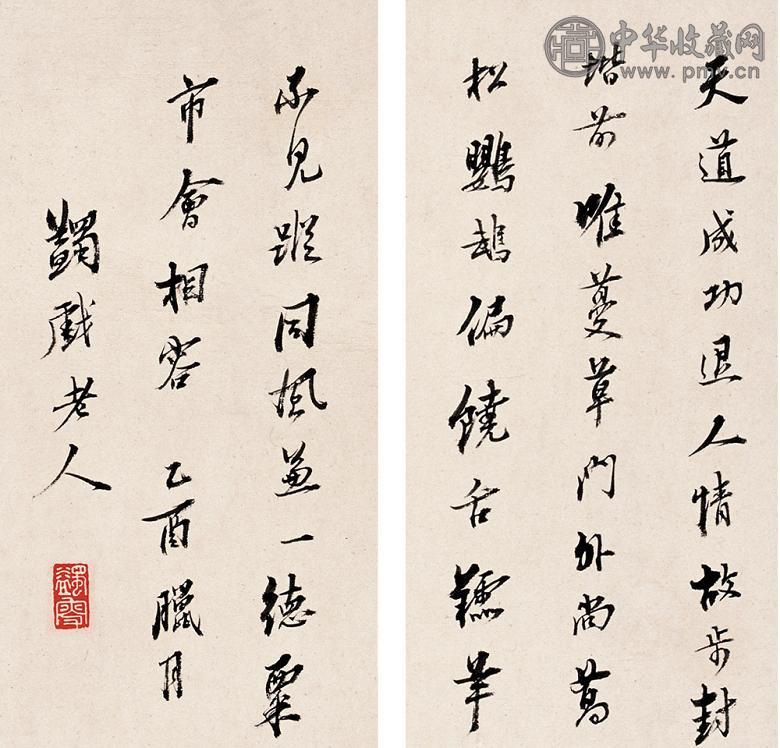 中华收藏网
www.pmv.cn
天道成功退人情故步封
堦前唯蔓草門外尚蒿
松鸚鵡偏饒舌
不見蹤同風兼一德粟
市會相容 乙酉臘月
蠲戲老人